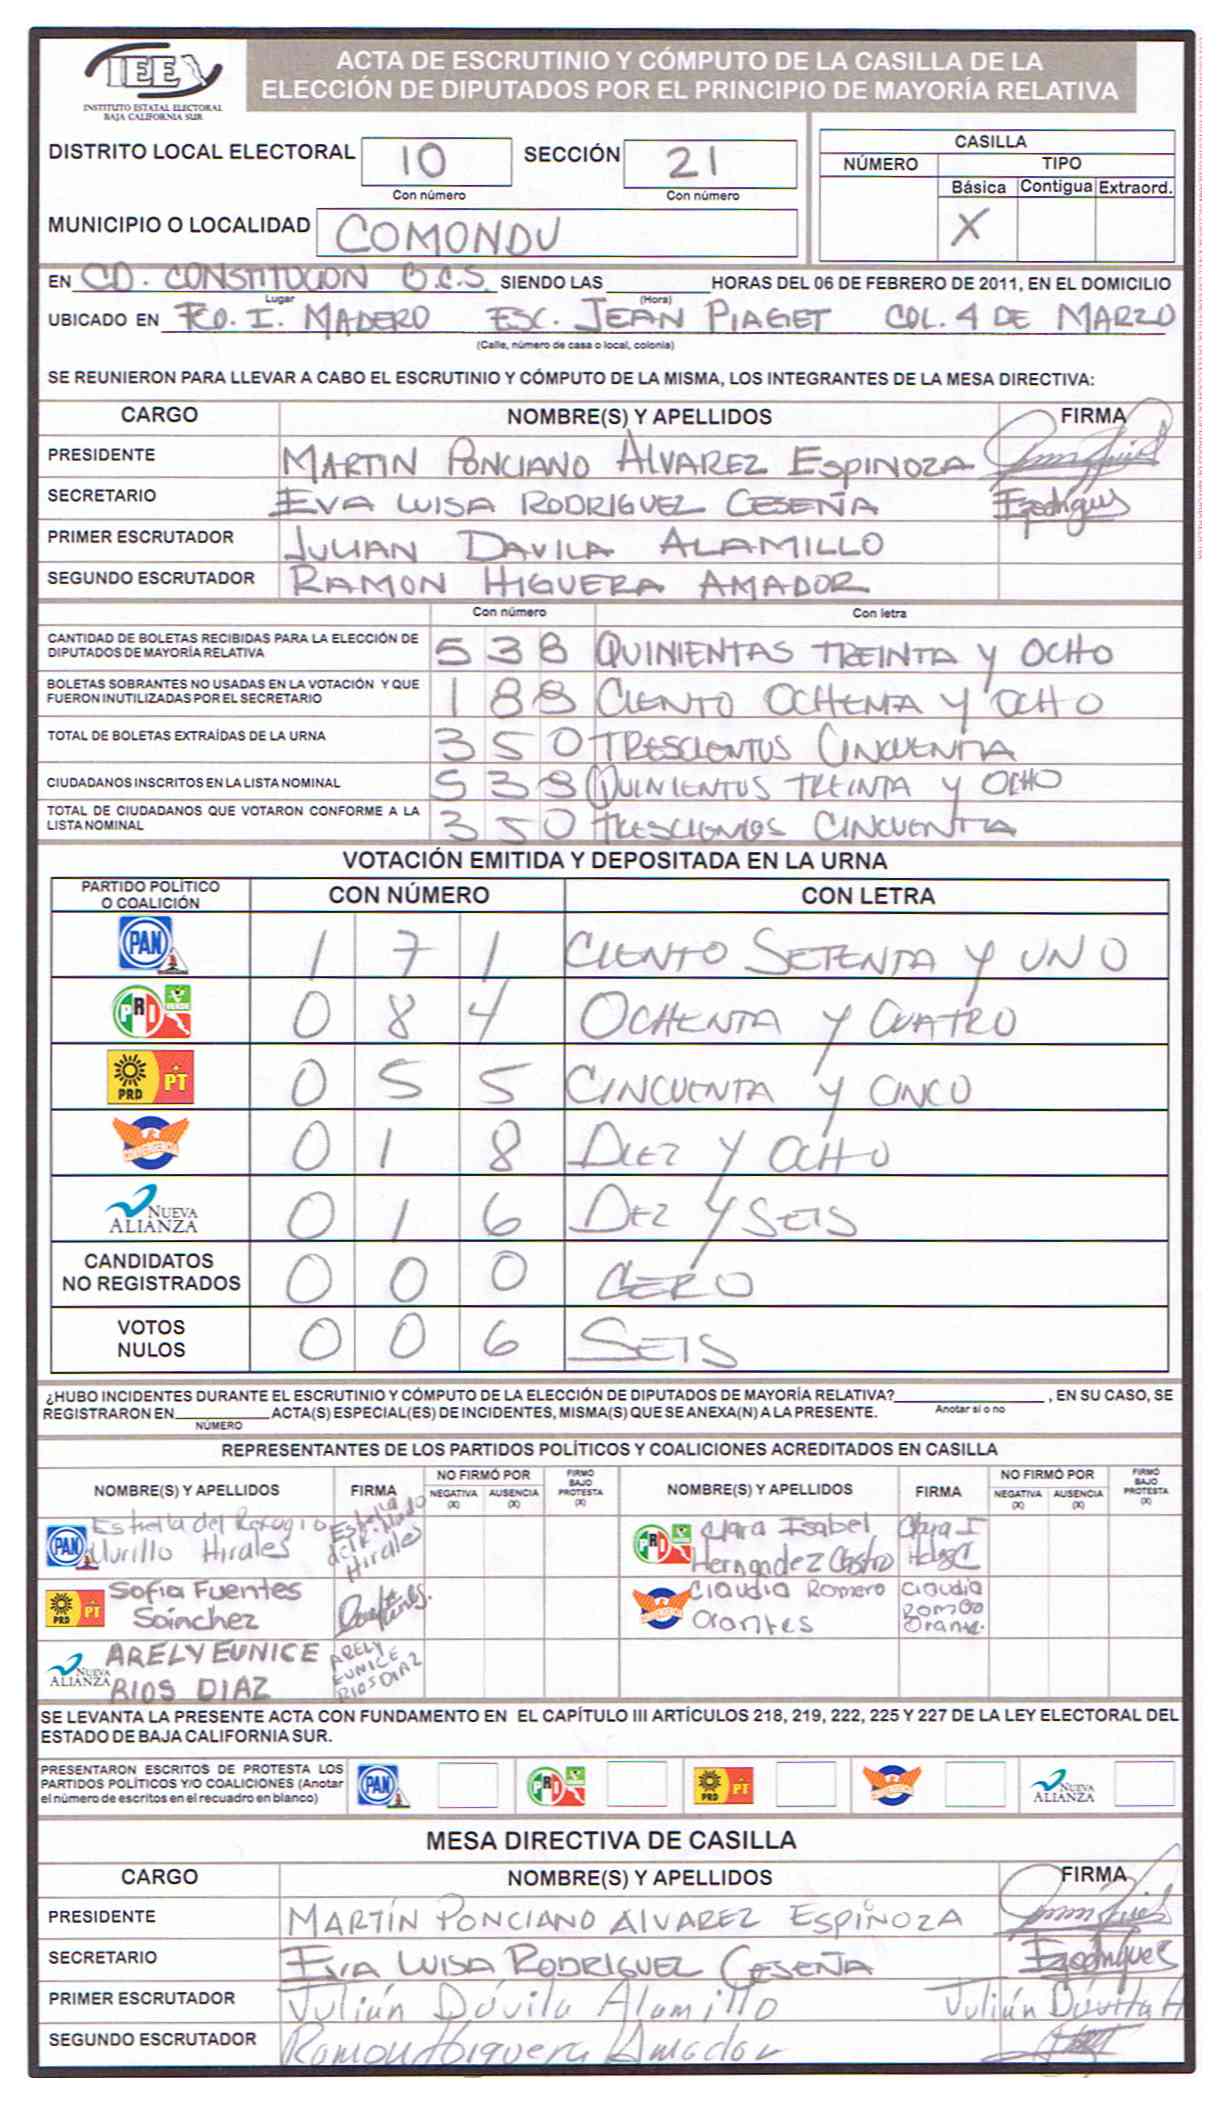 IEE
INSTITUTO ESTATAL ELECTORAL
BAJA CALIFORNIA SUR
ACTA DE ESCRUTINIO Y CÓMPUTO DE LA CASILLA DE LA
ELECCIÓN DE DIPUTADOS POR EL PRINCIPIO DE MAYORÍA RELATIVA
DISTRITO LOCAL ELECTORAL 10 SECCIÓN 21
Con número Con número
CASILLA
NÚMERO TIPO
Básica Contigua Extraord.
X
MUNICIPIO O LOCALIDAD COMONDU
EN CD. CONSTITUCION B.C.S. SIENDO LAS HORAS DEL 06 DE FEBRERO DE 2011, EN EL DOMICILIO
Lugar (Hora)
UBICADO EN FCO. I. MADERO ESC. JEAN PIAGET COL. 4 DE MARZO
(Calle, número de casa o local, colonia)
SE REUNIERON PARA LLEVAR A CABO EL ESCRUTINIO Y CÓMPUTO DE LA MISMA, LOS INTEGRANTES DE LA MESA DIRECTIVA:
CARGO NOMBRE(S) Y APELLIDOS FIRMA
PRESIDENTE MARTIN PONCIANO ALVAREZ ESPINOZA
SECRETARIO EVA LUISA RODRIGUEZ CESEÑA
PRIMER ESCRUTADOR JULIAN DAVILA ALAMILLO
SEGUNDO ESCRUTADOR RAMON HIGUERA AMADOR
Con número Con letra
CANTIDAD DE BOLETAS RECIBIDAS PARA LA ELECCIÓN DE
DIPUTADOS DE MAYORÍA RELATIVA 538 QUINIENTAS TREINTA Y OCHO
BOLETAS SOBRANTES NO USADAS EN LA VOTACIÓN Y QUE
FUERON INUTILIZADAS POR EL SECRETARIO 188 CIENTO OCHENTA Y OCHO
TOTAL DE BOLETAS EXTRAÍDAS DE LA URNA 350 TRESCIENTOS CINCUENTA
CIUDADANOS INSCRITOS EN LA LISTA NOMINAL 538 QUINIENTOS TREINTA Y OCHO
TOTAL DE CIUDADANOS QUE VOTARON CONFORME A LA
LISTA NOMINAL 350 TRESCIENTOS CINCUENTA
VOTACIÓN EMITIDA Y DEPOSITADA EN LA URNA
PARTIDO POLÍTICO
O COALICIÓN CON NÚMERO CON LETRA
PAN 1 7 1 CIENTO SETENTA Y UNO
PRI VERDE 0 8 4 OCHENTA Y CUATRO
PRD PT 0 5 5 CINCUENTA Y CINCO
CONVERGENCIA 0 1 8 DIEZ Y OCHO
NUEVA
ALIANZA 0 1 6 DEZ Y SEIS
CANDIDATOS
NO REGISTRADOS 0 0 0 CERO
VOTOS
NULOS 0 0 6 SEIS
¿HUBO INCIDENTES DURANTE EL ESCRUTINIO Y CÓMPUTO DE LA ELECCIÓN DE DIPUTADOS DE MAYORÍA RELATIVA? , EN SU CASO, SE
Anotar sí o no
REGISTRARON EN ACTA(S) ESPECIAL(ES) DE INCIDENTES, MISMA(S) QUE SE ANEXA(N) A LA PRESENTE.
NÚMERO
REPRESENTANTES DE LOS PARTIDOS POLÍTICOS Y COALICIONES ACREDITADOS EN CASILLA
NOMBRE(S) Y APELLIDOS FIRMA NO FIRMÓ POR NEGATIVA (X) AUSENCIA (X) FIRMÓ BAJO PROTESTA (X) NOMBRE(S) Y APELLIDOS FIRMA NO FIRMÓ POR NEGATIVA (X) AUSENCIA (X) FIRMÓ BAJO PROTESTA (X)
PAN Estrella del Refugio
Murillo Hirales
PRI Clara Isabel
Hernandez Castro
PRD PT Sofia Fuentes
Sainchez
CONVERGENCIA Claudia Romero
Orantes
Claudia
NUEVA
ALIANZA ARELY EUNICE
RIOS DIAZ
ARELY
EUNICE
RIOS DIAZ
SE LEVANTA LA PRESENTE ACTA CON FUNDAMENTO EN EL CAPÍTULO III ARTÍCULOS 218, 219, 222, 225 Y 227 DE LA LEY ELECTORAL DEL
ESTADO DE BAJA CALIFORNIA SUR.
PRESENTARON ESCRITOS DE PROTESTA LOS
PARTIDOS POLÍTICOS Y/O COALICIONES (Anotar
el número de escritos en el recuadro en blanco)
PAN PRI PRD PT CONVERGENCIA NUEVA ALIANZA
MESA DIRECTIVA DE CASILLA
CARGO NOMBRE(S) Y APELLIDOS FIRMA
PRESIDENTE MARTÍN PONCIANO ALVAREZ ESPINOZA
SECRETARIO EVA LUISA RODRIGUEZ CESEÑA
PRIMER ESCRUTADOR Julián Dávila Alamillo Julián Dávila A
SEGUNDO ESCRUTADOR Ramon Higuera Amador